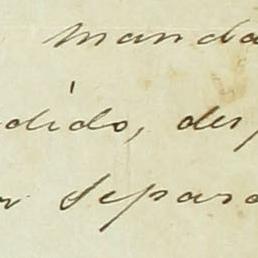 manda
dido, des
r Separa